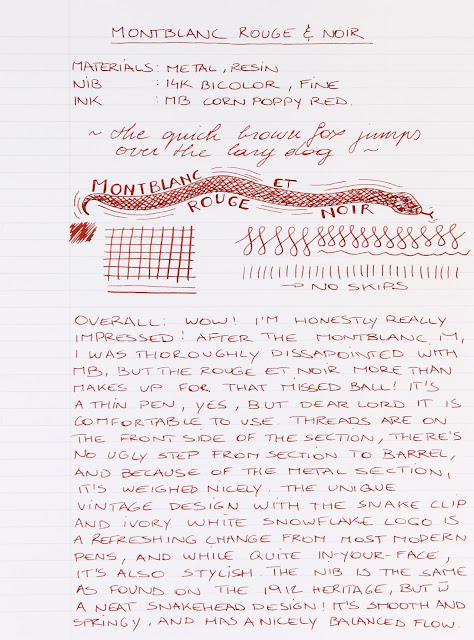 MONTBLANC ROUGE & NOIR
MATERIALS : METAL, RESIN
NIB : 14K BICOLOR, FINE
INK : MB CORN POPPY RED.
~ the quick brown fox jumps
over the lazy dog ~
MONTBLANC ET
ROUGE NOIR
→ NO SKIPS
OVERALL: WOW! I'M HONESTLY REALLY
IMPRESSED! AFTER THE MONTBLANC M,
I WAS THOROUGHLY DISSAPOINTED WITH
MB, BUT THE ROUGE ET NOIR MORE THAN
MAKES UP FOR THAT MISSED BALL! IT'S
A THIN PEN, YES, BUT DEAR LORD IT IS
COMFORTABLE TO USE. THREADS ARE ON
THE FRONT SIDE OF THE SECTION, THERE'S
NO UGLY STEP FROM SECTION TO BARREL,
AND BECAUSE OF THE METAL SECTION,
IT'S WEIGHED NICELY. THE UNIQUE
VINTAGE DESIGN WITH THE SNAKE CLIP
AND IVORY WHITE SNOWFLAKE LOGO IS
A REFRESHING CHANGE FROM MOST MODERN
PENS, AND WHILE QUITE IN-YOUR-FACE,
IT'S ALSO STYLISH. THE NIB IS THE SAME
AS FOUND ON THE 1912 HERITAGE, BUT
A NEAT SNAKEHEAD DESIGN! IT'S SMOOTH AND
SPRINGY, AND HAS A NICELY BALANCED FLOW.